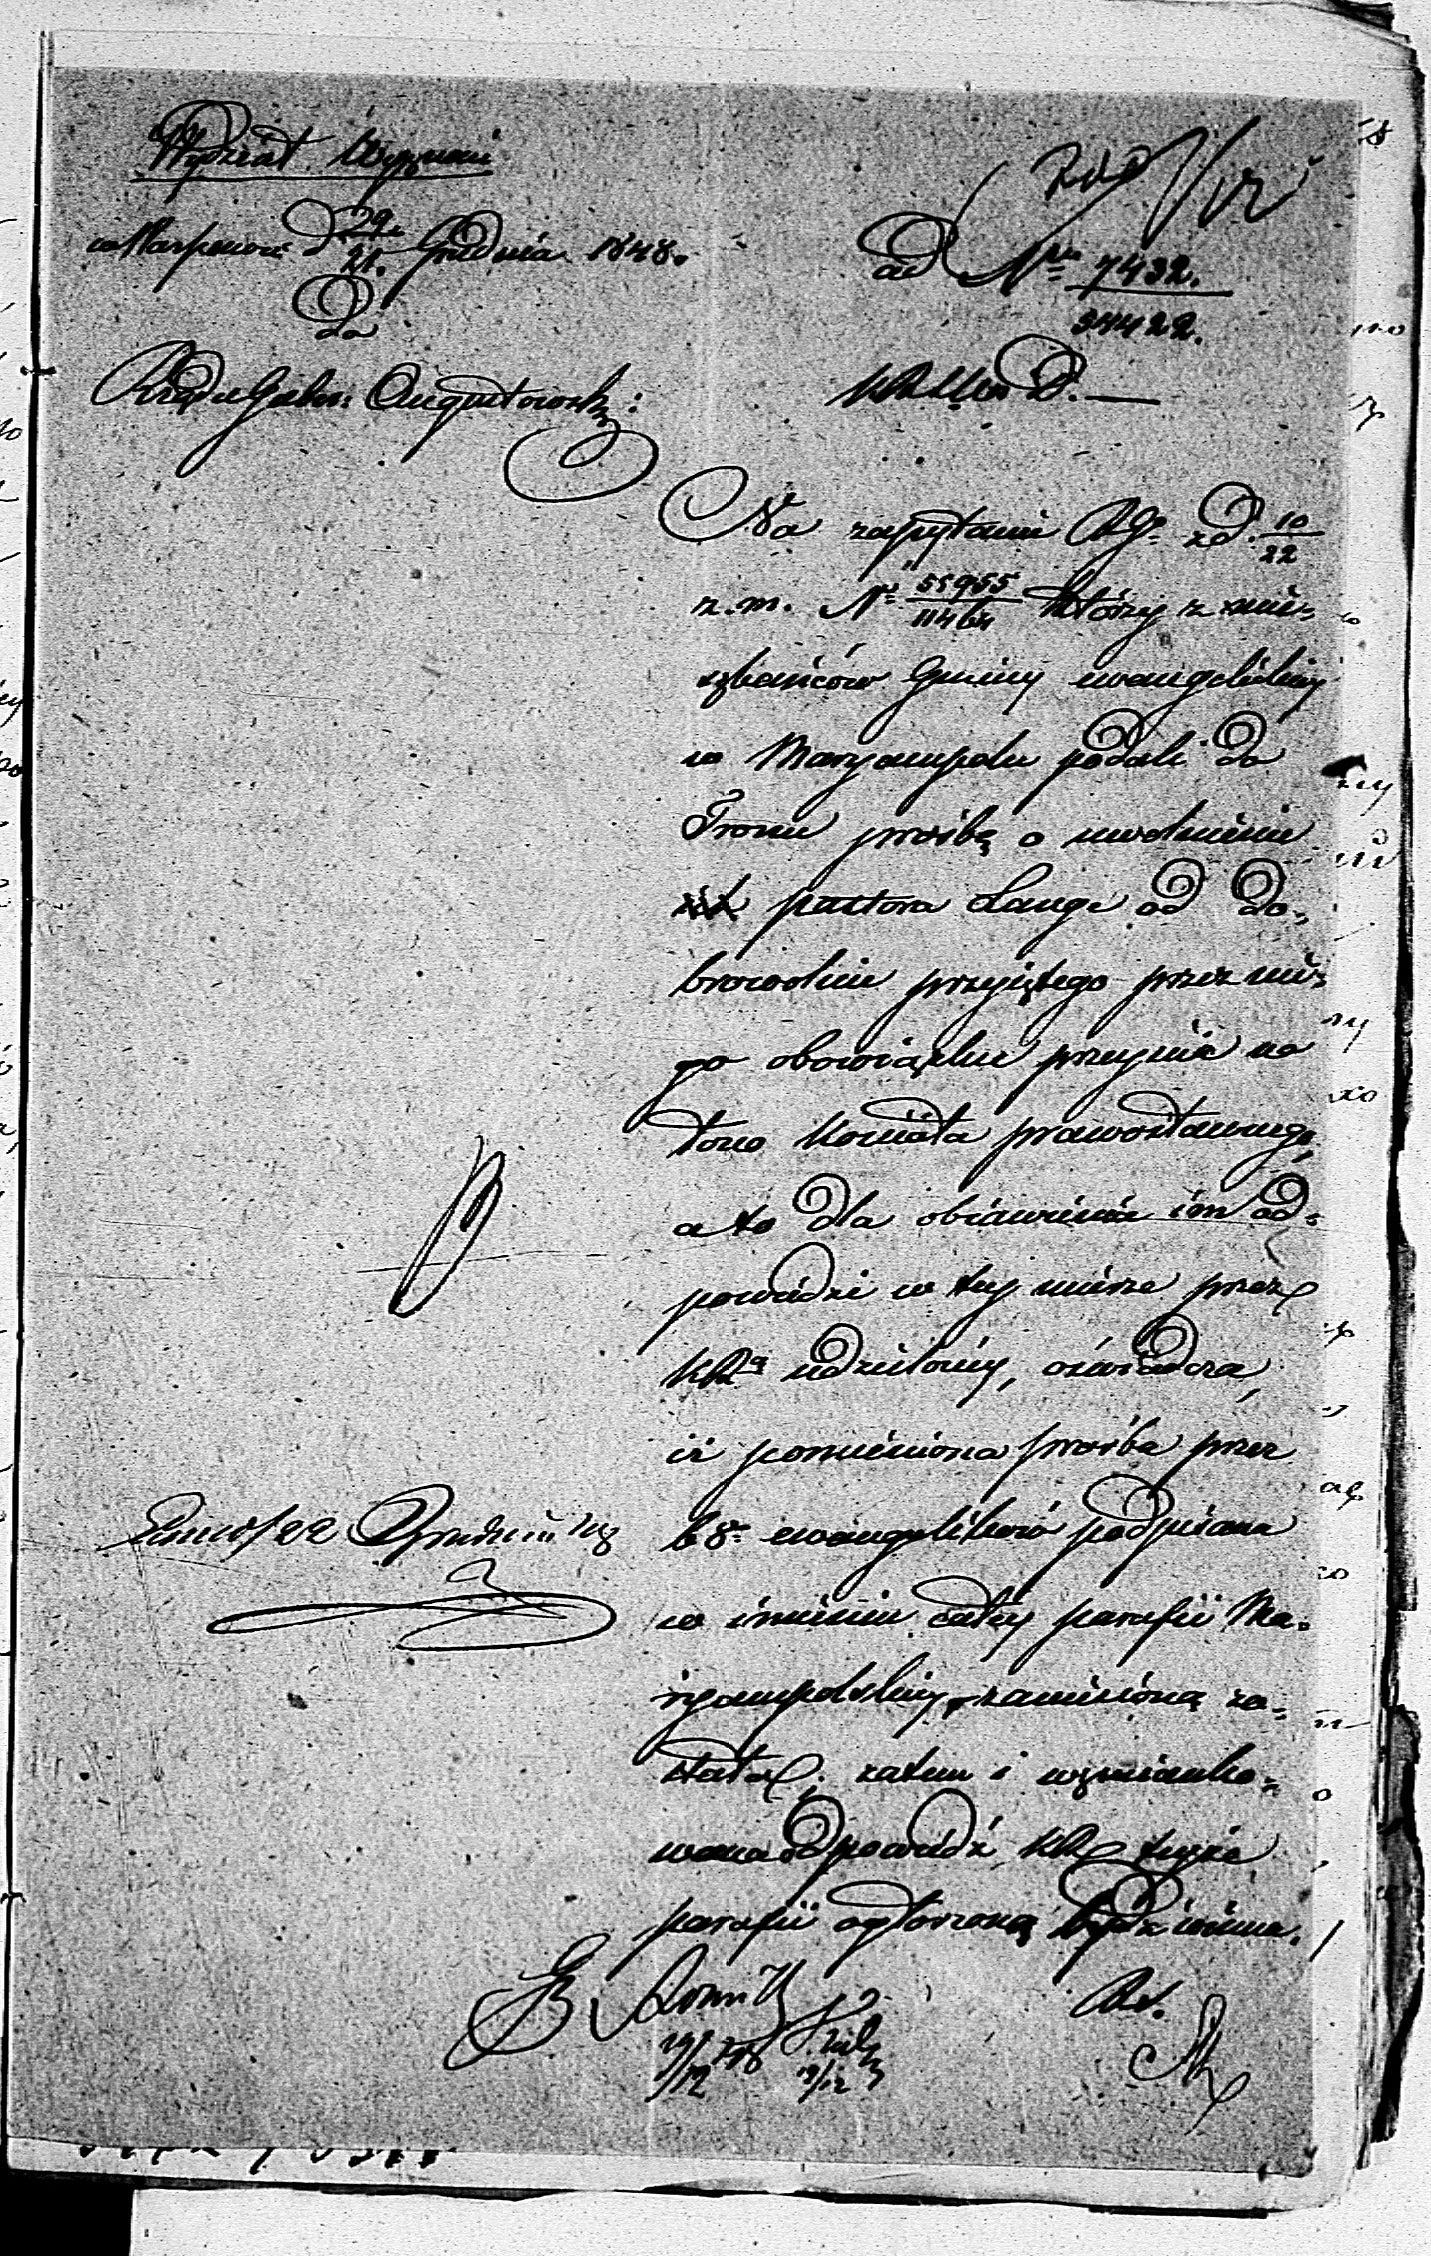 Wydział Wyznań
w Warszawie d 29/21. Grudnia 1848.
Do
Rządu Gubern: Augustowsk:
ad Nru 7432.
34422.
Na zapytanie RGo z d. 10/22
z. m. No 55955/11464 którzy z mie-
szkańców Gminy ewangelickiej
w Maryampolu podali do
Tronu prośbę o uwolnienie
pastora Lange od do-
browolnie przyjętego przez nie-
go obowiązku przejścia na
łono Kościoła prawosławnego,
a to dla objawienia im od-
powiedzi w tej mierze przez
KRą udzielonej, oświadcza,
iż pomieniona prośba przez
68 ewangelików podpisana
w imieniu całej parafii Ma-
ryampolskiej zaniesioną zo-
stała; zatem i wzmianko-
wana odpowiedź KR tejże
parafii ogłoszoną być winna.
22 Grudnia